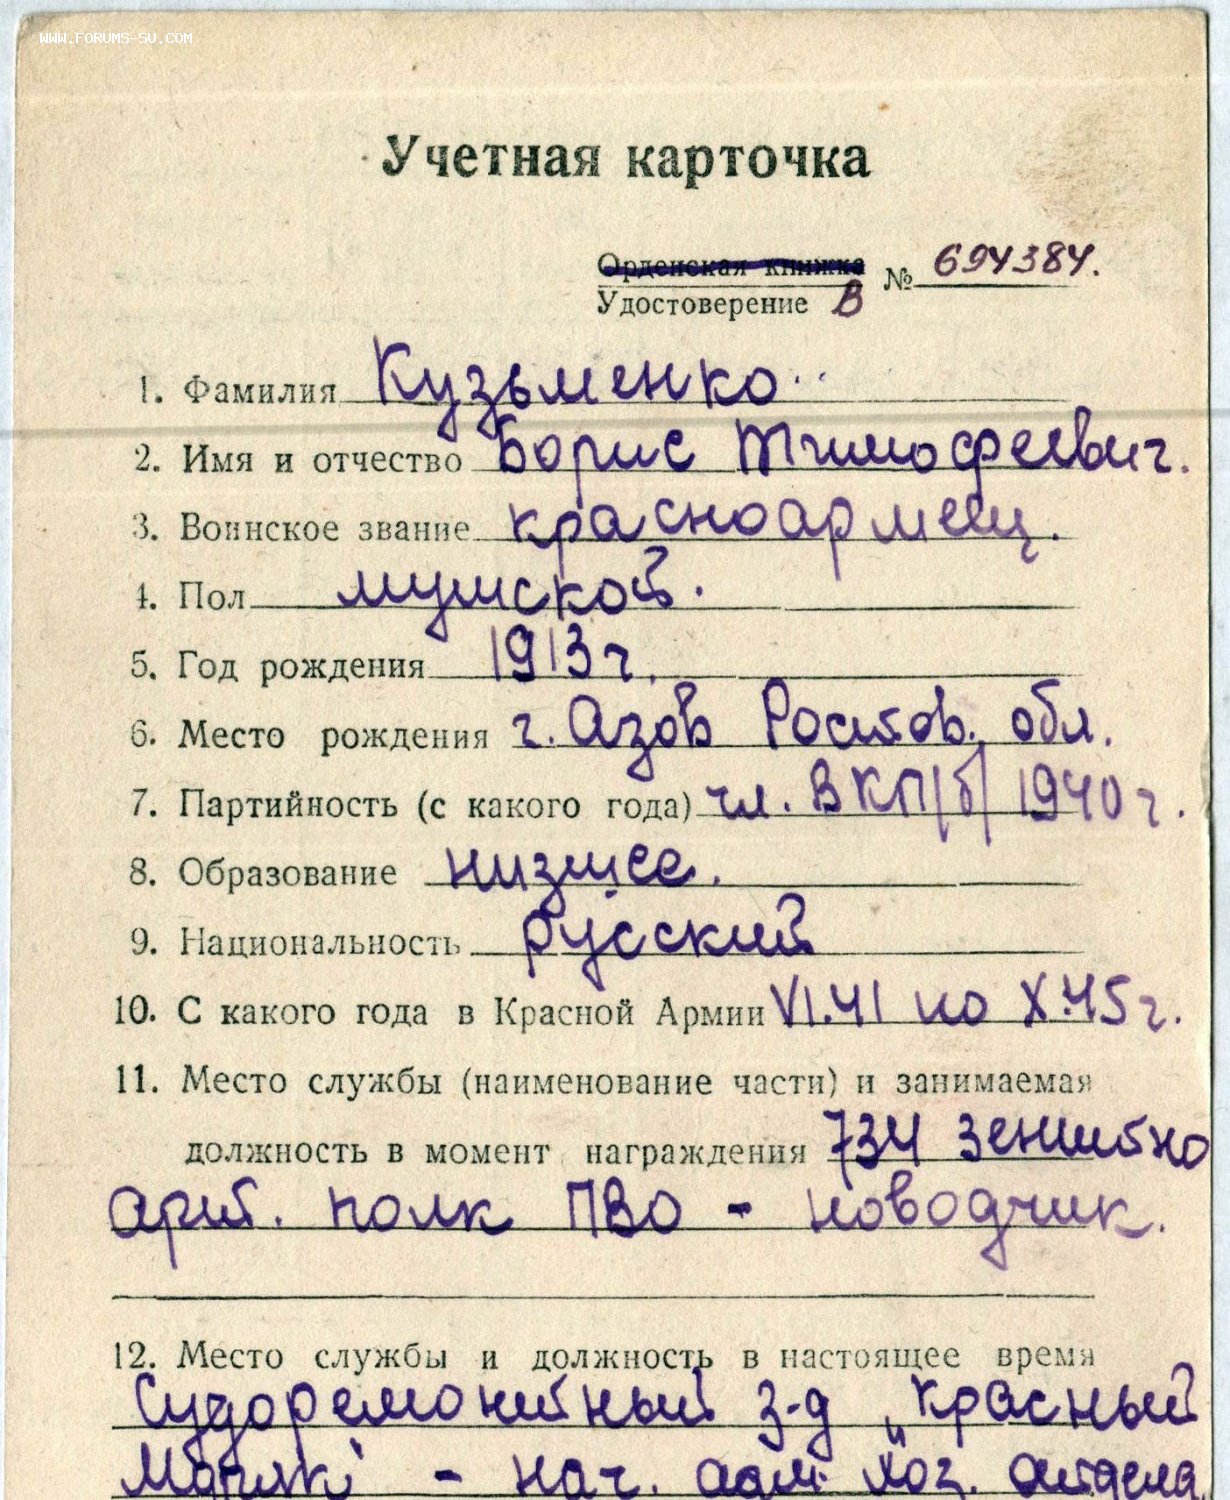 WWW.FORUMS-SU.COM
Учетная карточка
Орденская книжка
Удостоверение В № 694384.
1. Фамилия Кузьменко
2. Имя и отчество Борис Тимофеевич.
3. Воинское звание красноармеец.
4. Пол мужской.
5. Год рождения 1913 г.
6. Место рождения г. Азов Ростов. обл.
7. Партийность (с какого года) чл. ВКП/б/ 1940 г.
8. Образование низшее.
9. Национальность русский
10. С какого года в Красной Армии VI.41 по X.45 г.
11. Место службы (наименование части) и занимаемая
должность в момент награждения 734 зенитно
арт. полк ПВО - наводчик.
12. Место службы и должность в настоящее время
Судоремонтный з-д „Красный
Моряк" - нач. адм. хоз. отдела.